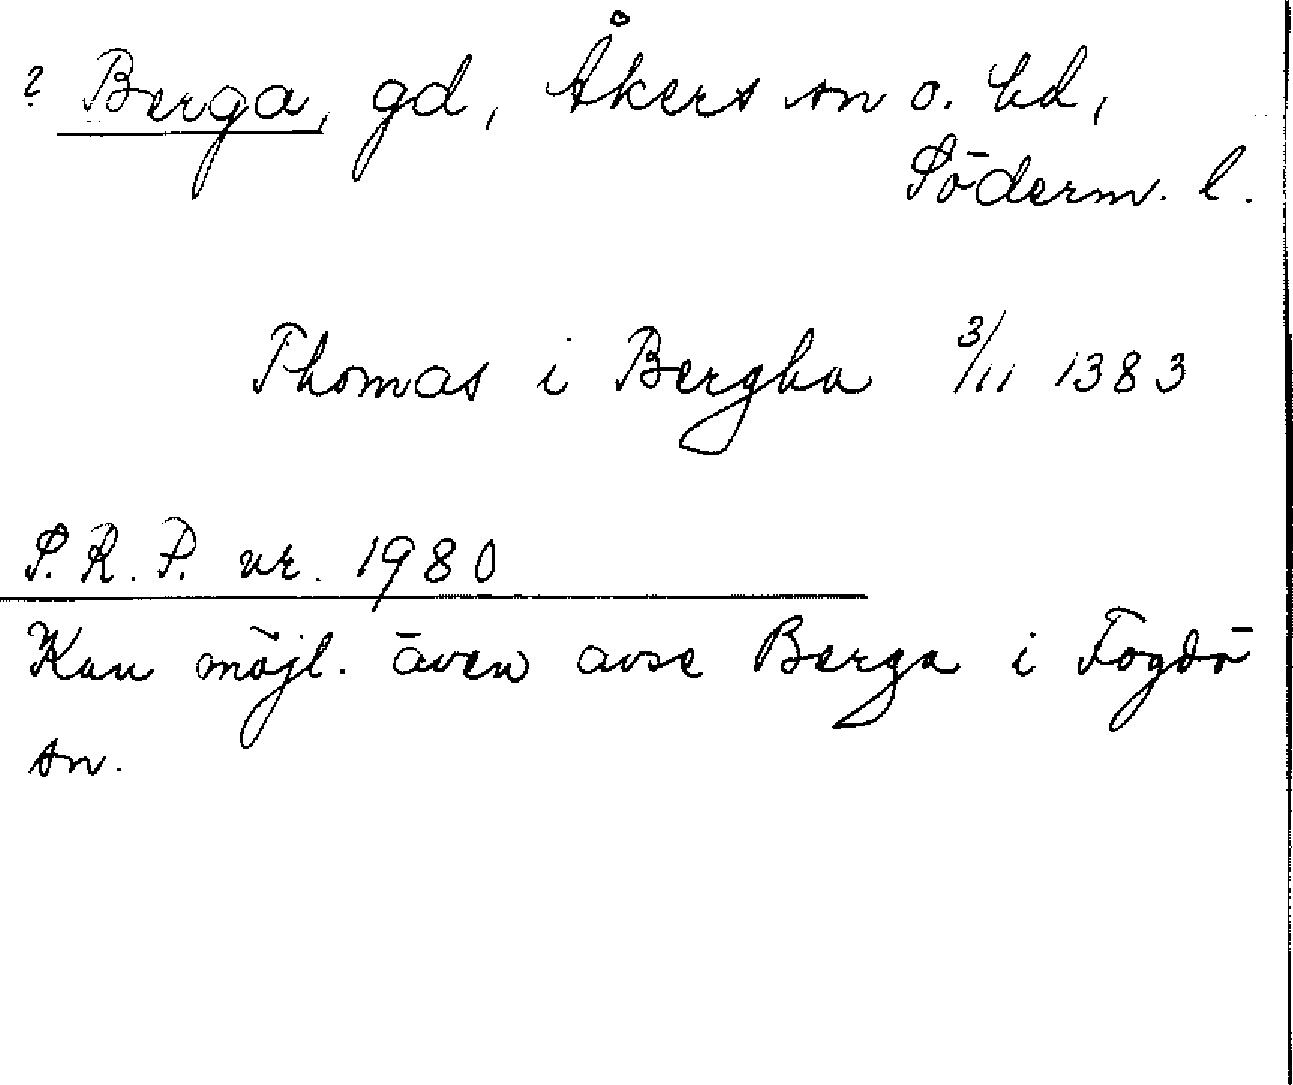 ? Berga, gd, Åkers sn o. hd,
Söderm. l.
Thomas i Bergha 3/11 1383
S. R. P. nr. 1980
Kan möjl. även avse Berga i Fogdö
sn.